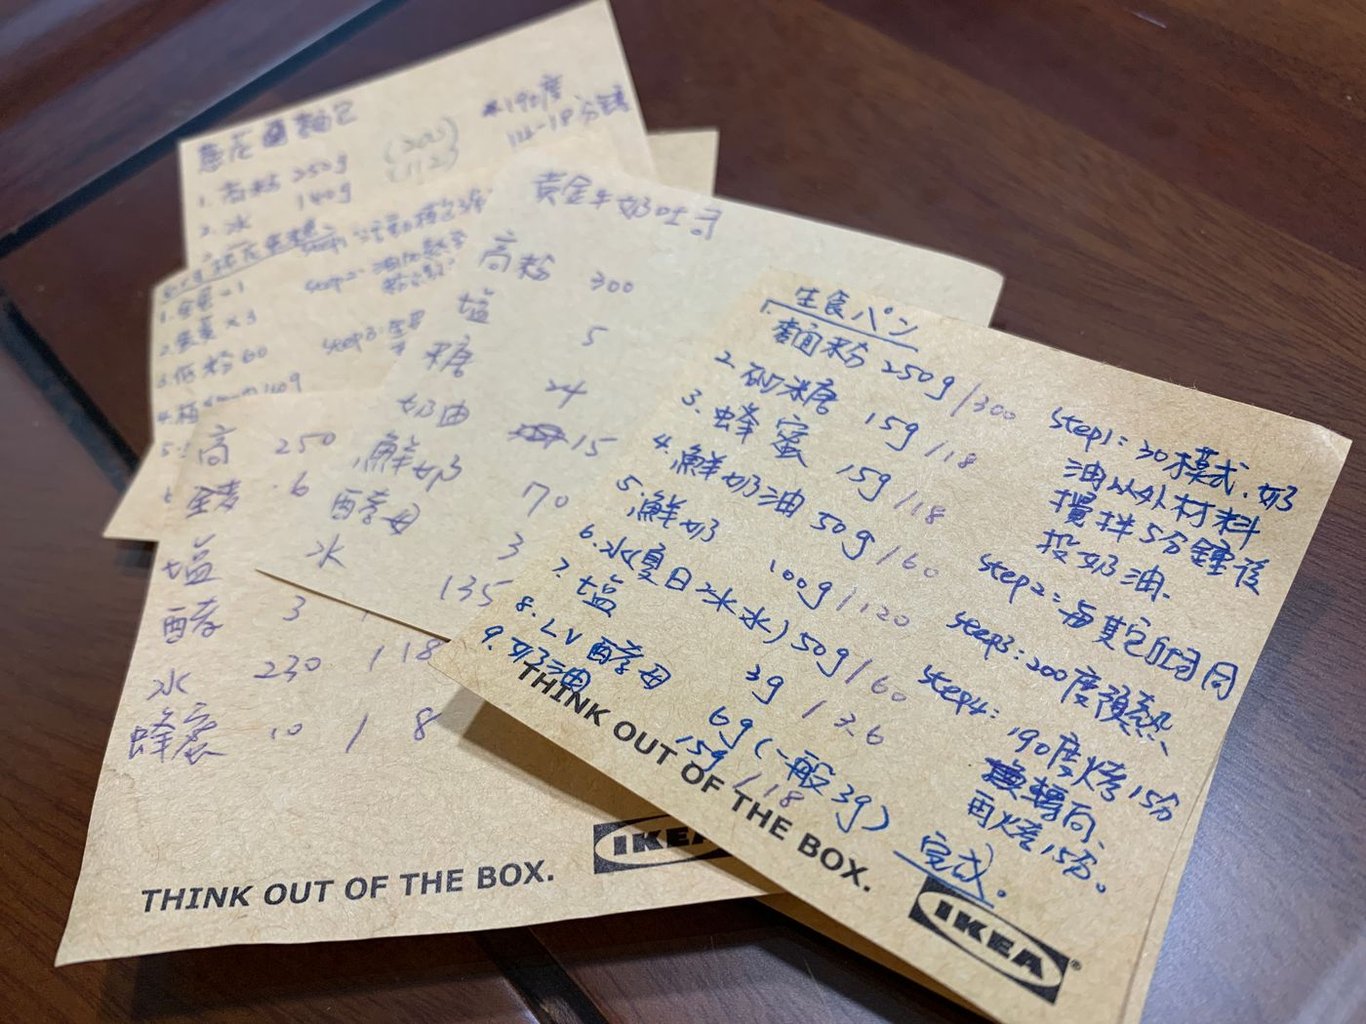 麵包
190度
1. 高粉 250g
2. 水 140g
1. 全蛋 - 1
2. 蛋黃 x 3
3. 低粉 60
黃金牛奶吐司
高粉 300
塩 5
糖 24
奶油 15
鮮奶 70
酵母 3
水 135
高 250
塩
酵 3
水 230 / 18
蜂蜜 10 / 8
THINK OUT OF THE BOX.
IKEA
生食パン
1. 麵粉 250g / 300
2. 砂糖 15g / 18
3. 蜂蜜 15g / 18
4. 鮮奶油 50g / 60
5. 鮮奶 100g / 120
6. 水(夏日冰水) 50g / 60
7. 塩 3g / 3.6
8. LV 酵母 6g (一般3g)
9. 奶油 15g / 18
step1: 30模式. 奶
油以外材料
攪拌5分鐘後
投奶油.
step2: 與其它吐司同
step3: 200度預熱
step4: 190度烤15分
轉向
再烤15分。
完成。
THINK OUT OF THE BOX.
IKEA